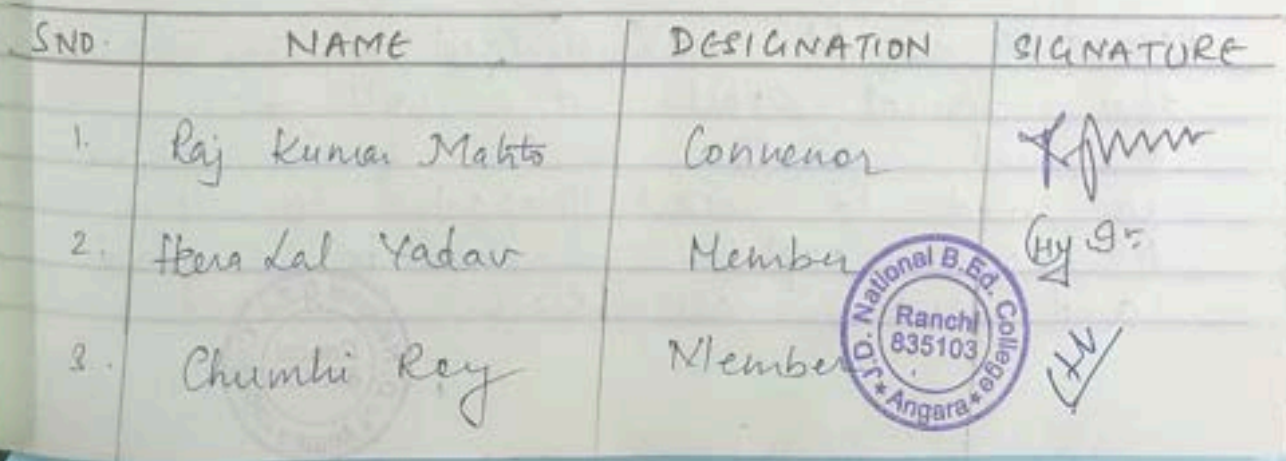 SNO. NAME DESIGNATION SIGNATURE
1. Raj Kumar Mahto Convenor
2. Heera Lal Yadav Member
3. Chumki Ray Member
J.D. National B.Ed. College
Ranchi
835103
* Angara *